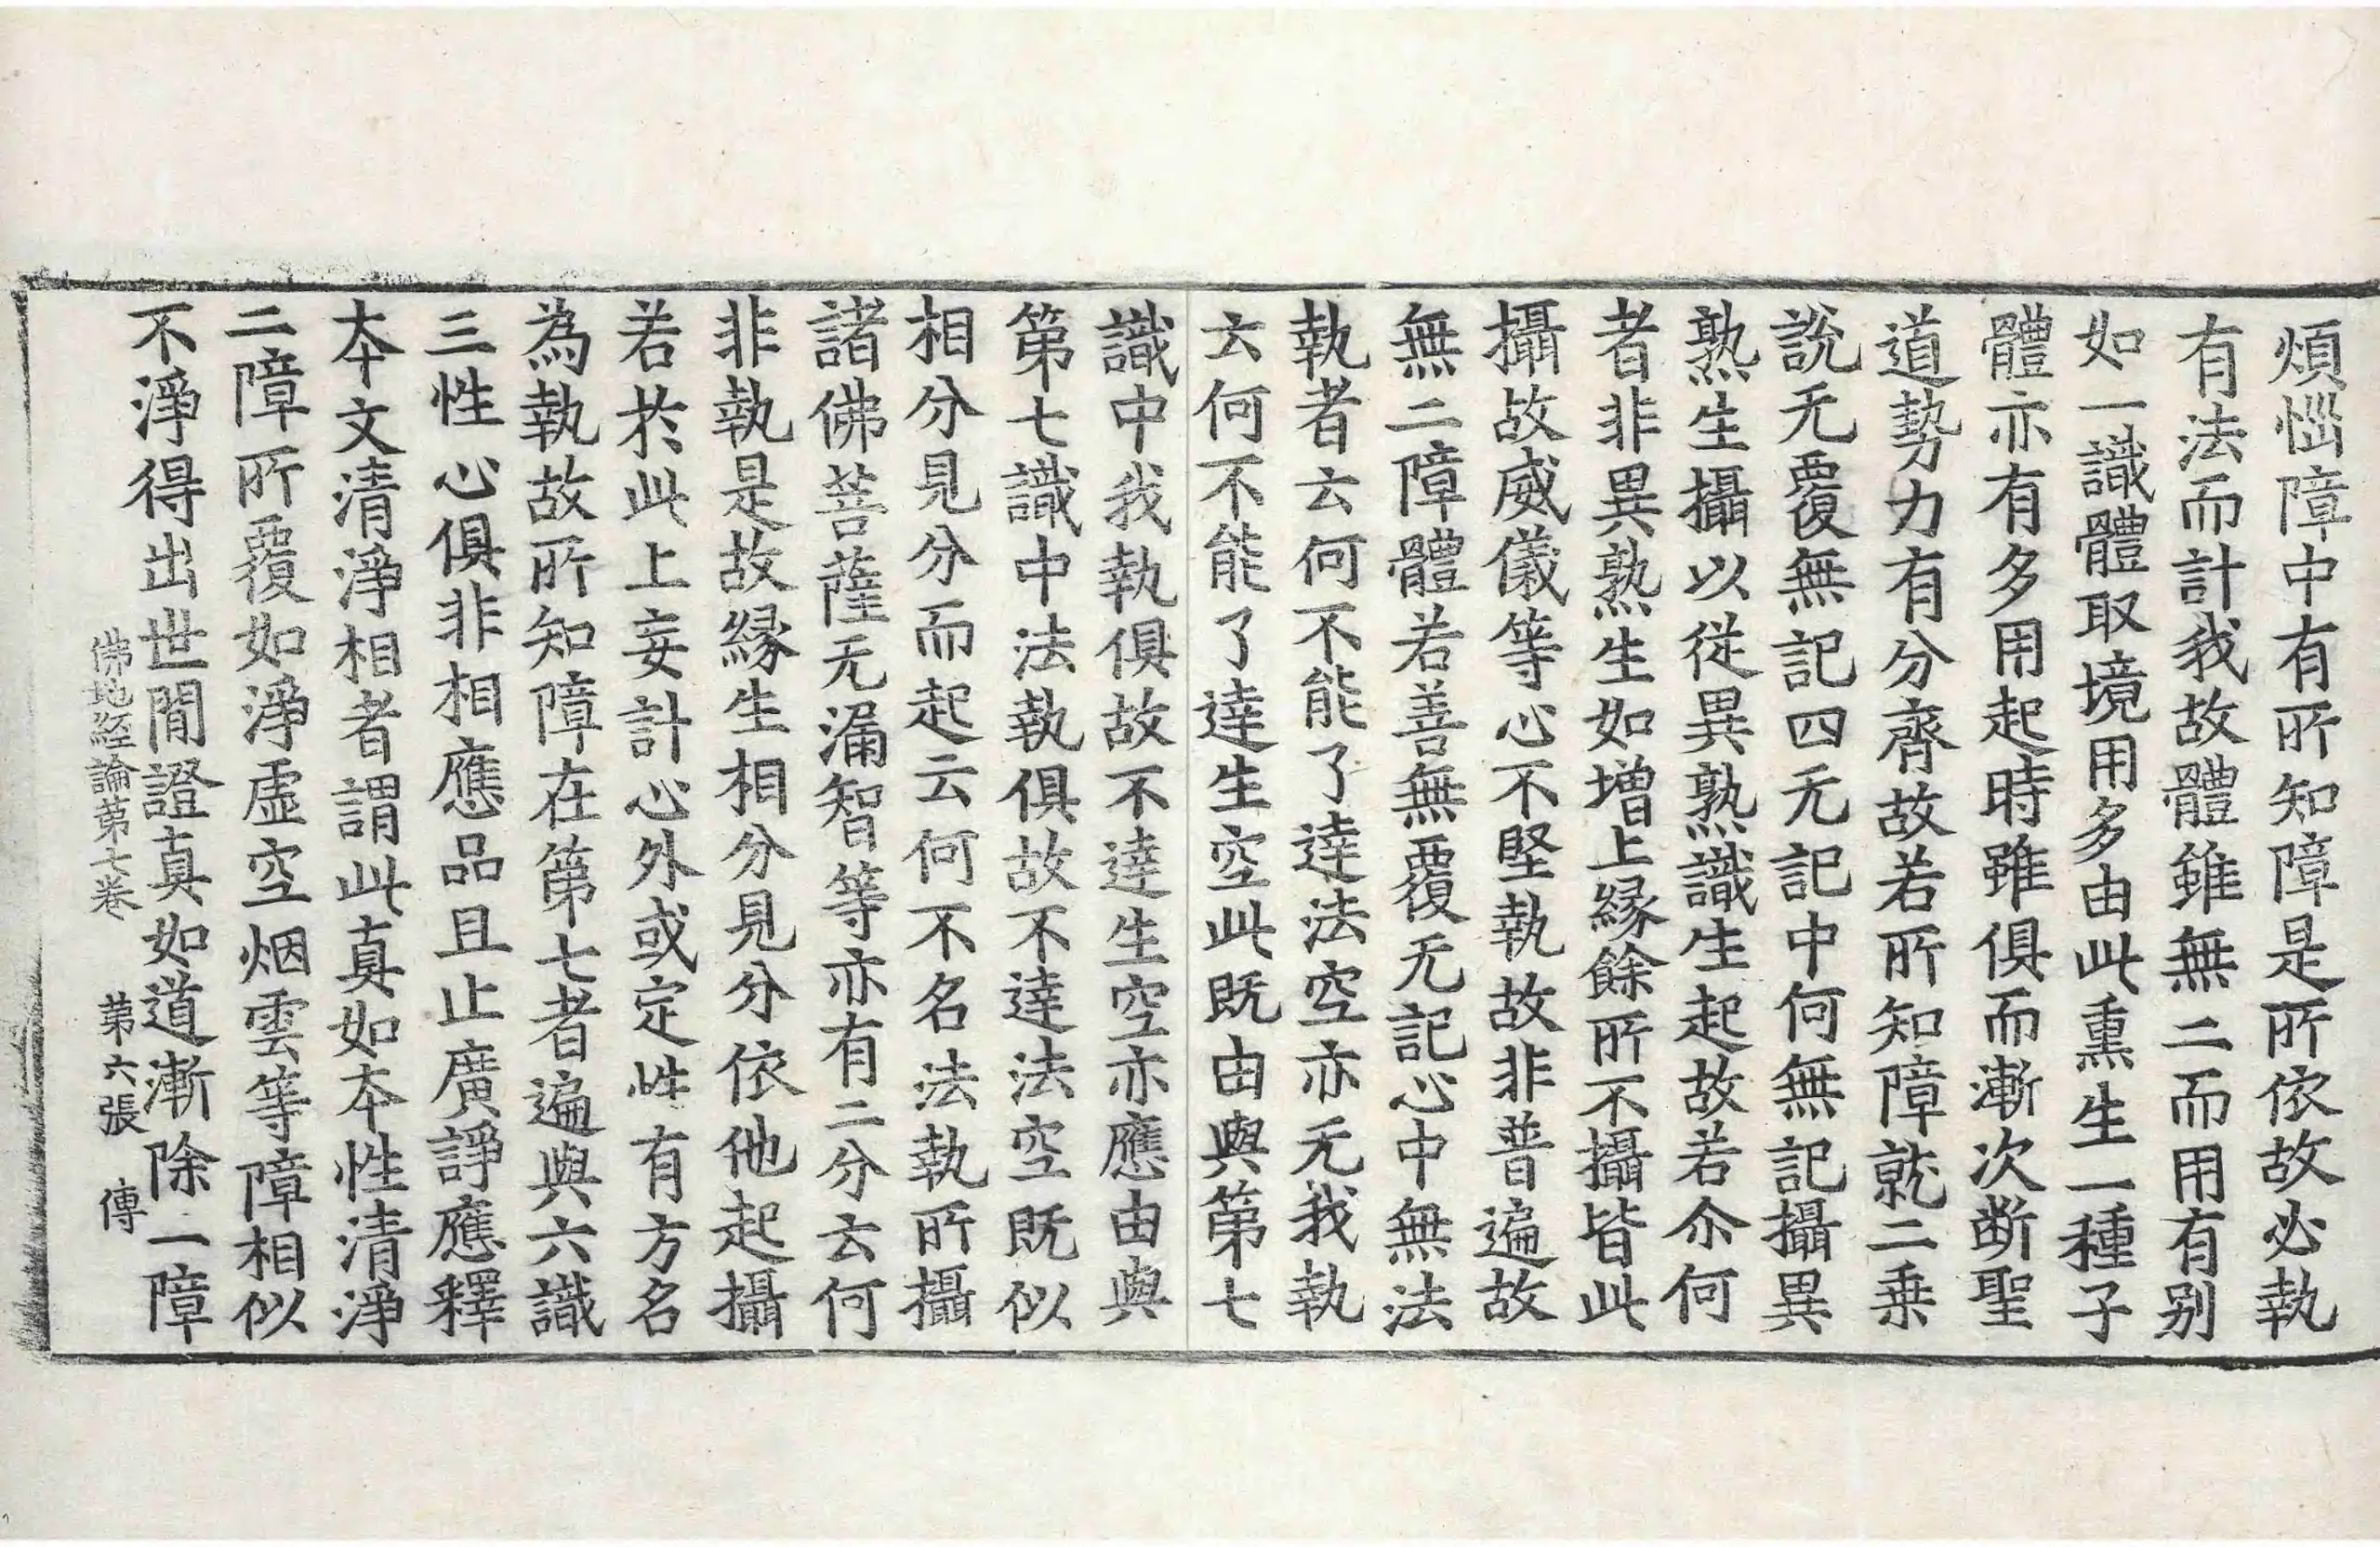 煩惱障中有所知障是所依故必執
有法而計我故體雖無二而用有别
如一識體取境用多由此熏生一種子
體亦有多用起時雖俱而漸次斷聖
道勢力有分齊故若所知障就二乗
說无覆無記四无記中何無記攝異
熟生攝以從異熟識生起故若尒何
者非異熟生如增上緣餘所不攝皆此
攝故威儀等心不堅執故非普遍故
無二障體若善無覆无記心中無法
執者云何不能了達法空亦无我執
云何不能了達生空此既由與第七
識中我執俱故不達生空亦應由與
第七識中法執俱故不達法空既似
相分見分而起云何不名法執所攝
諸佛菩薩无漏智等亦有二分云何
非執是故緣生相分見分依他起攝
若於此上妄計心外或定性有方名
為執故所知障在第七者遍與六識
三性心俱非相應品且止廣諍應釋
本文清淨相者謂此真如本性清淨
二障所覆如淨虛空烟雲等障相似
不淨得出世間證真如道漸除二障
佛地経論第七卷　第六張　傳